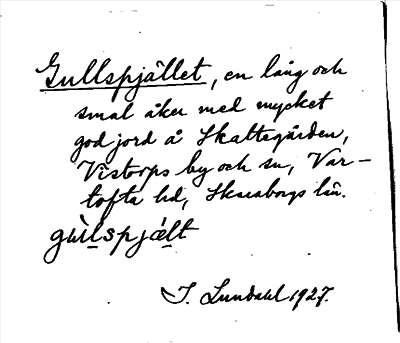 Gullspjället, en lång och
smal åker med mycket
god jord å Skattegården,
Vistorps by och sn, Var-
tofta hd, Skaraborgs län.
gùlspjælt
I. Lundahl 1927.